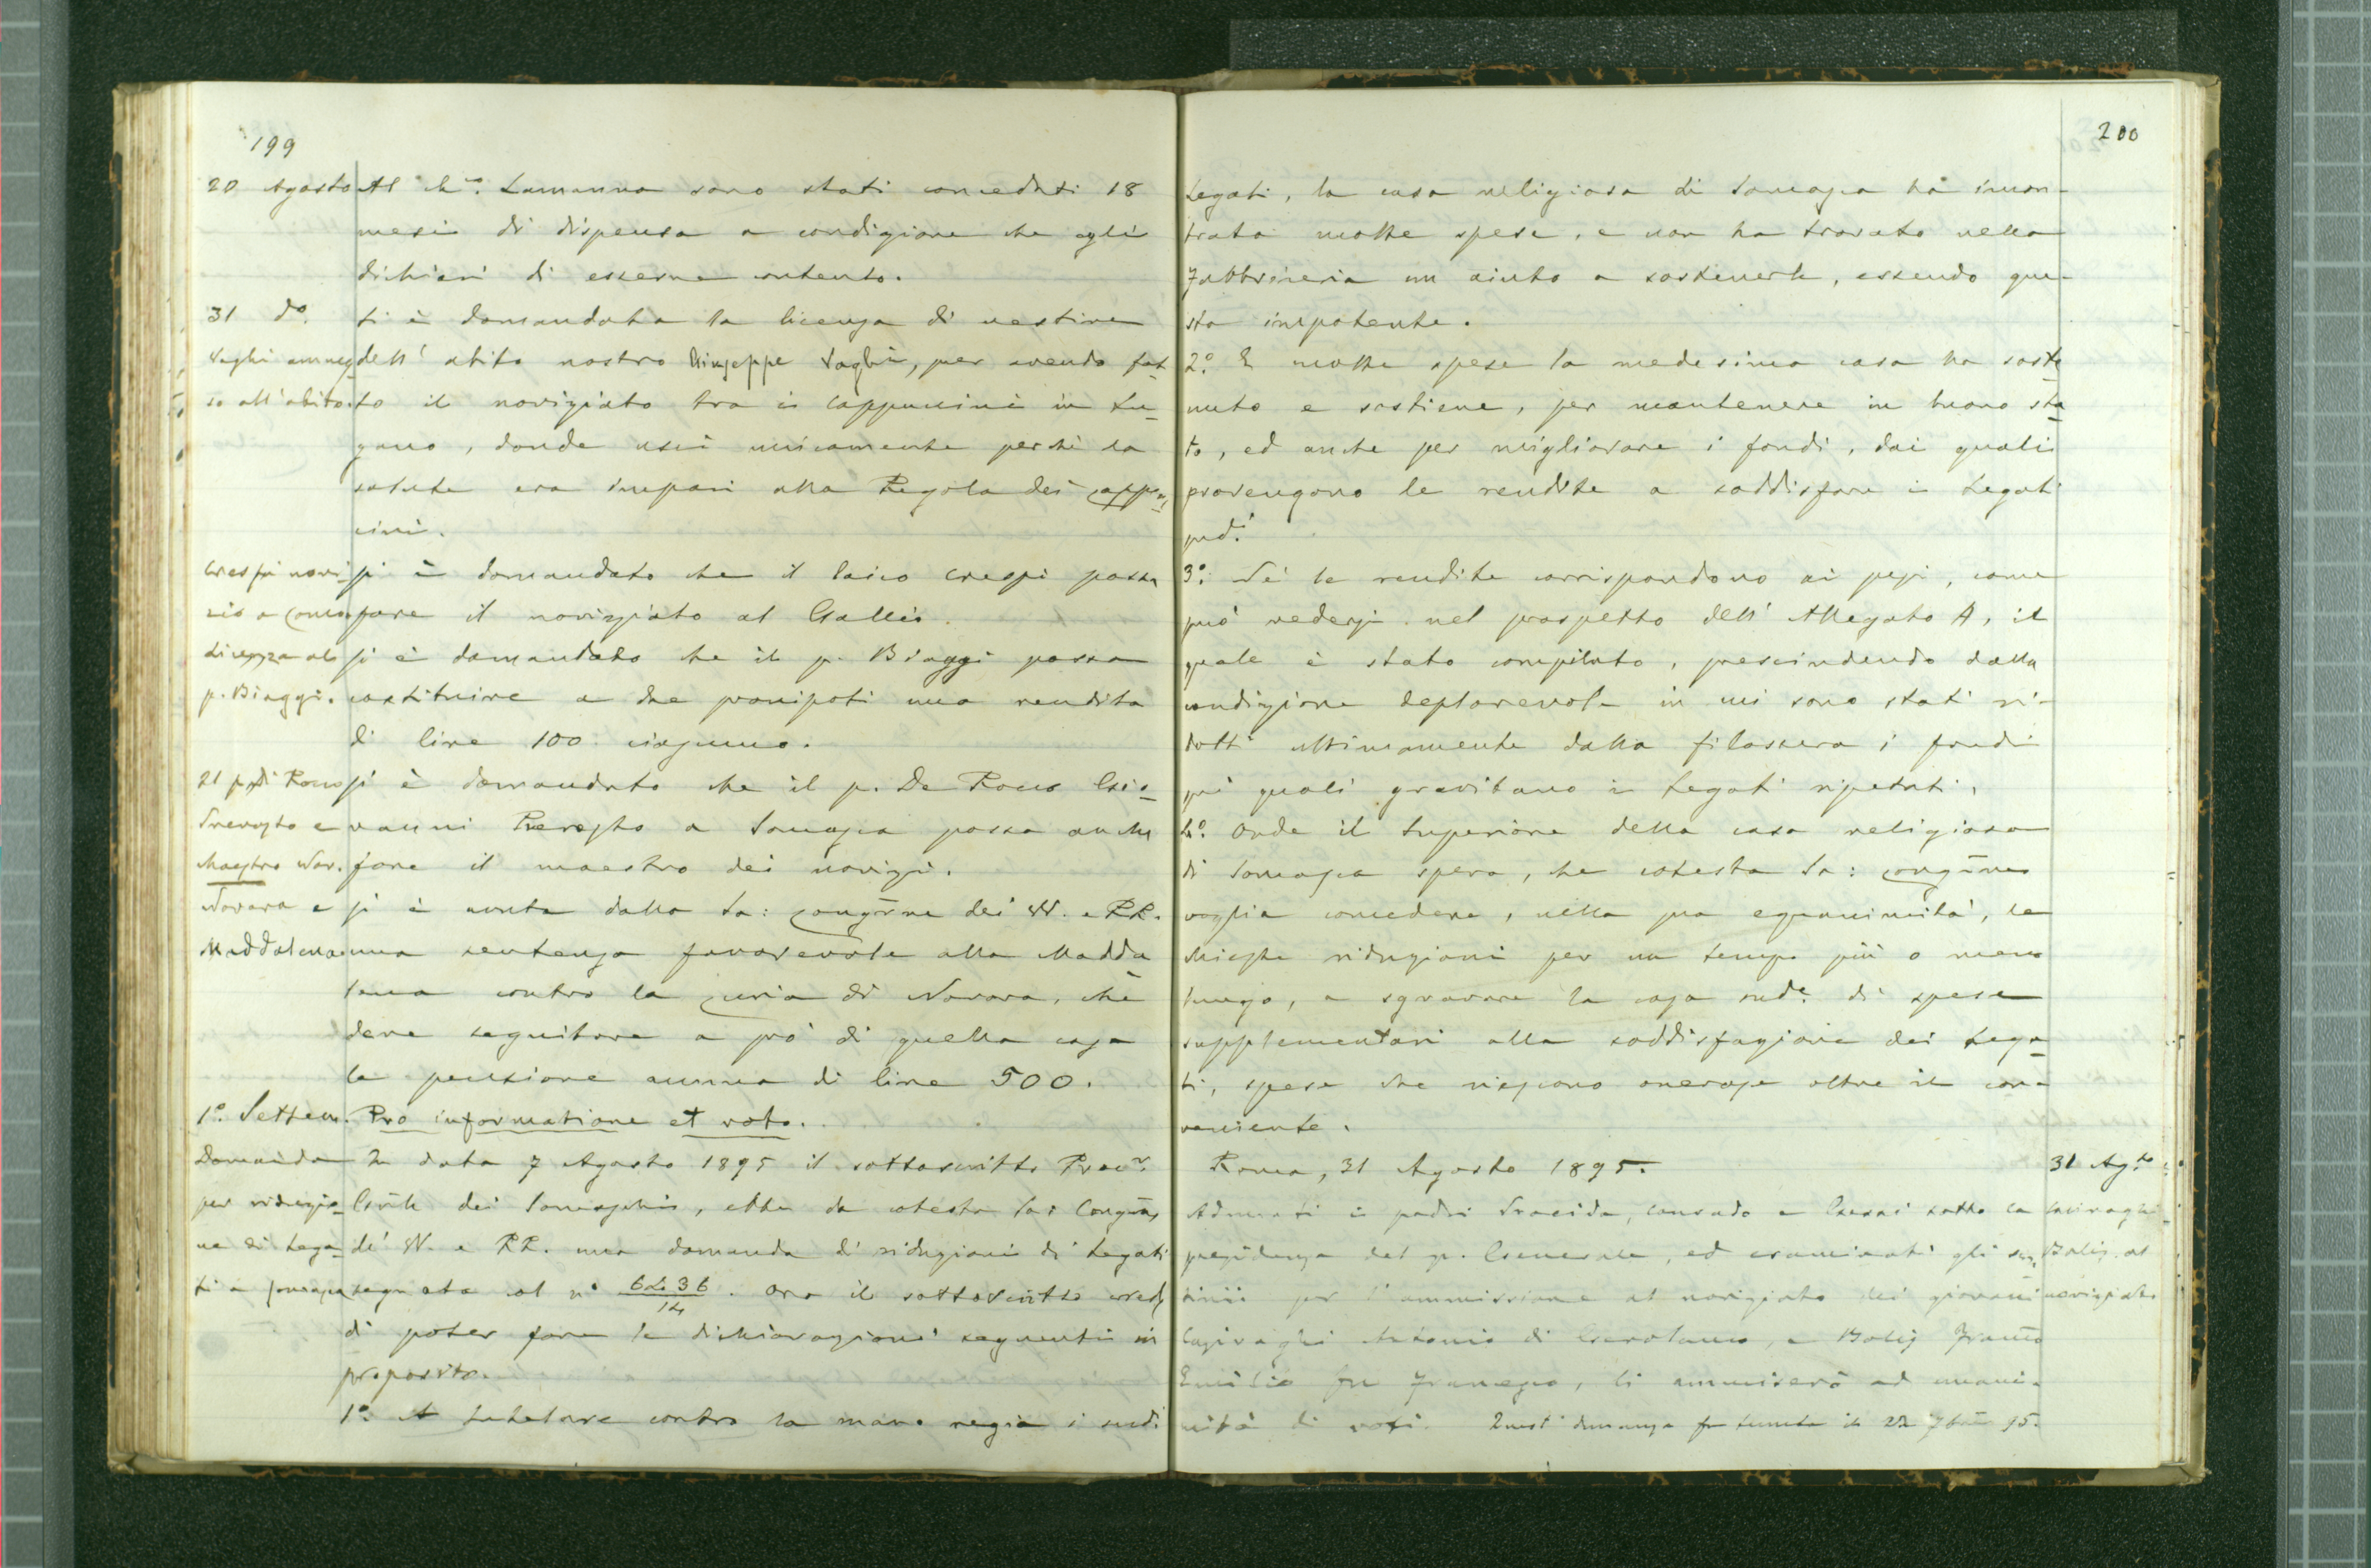 199
20 Agosto Al Ch.co Lamanna sono stati conceduti 18
mesi di dispensa a condizione che egli
dichiari di esserne contento.
31 do. Si è domandata la licenza di vestire
Vaghi ammes- dell' abito nostro Giuseppe Vaghi, pur avendo fat-
so all'abito. to il noviziato tra i Cappuccini in Lu-
gano, donde uscì unicamente perchè la
salute era impari alla Regola dei Cappuc-
cini.
Crespi novi- Si è domandato che il laico Crespi possa
zio a Como fare il noviziato al Gallio.
Licenza al Si è domandato che il p. Biaggi possa
p. Biaggi. costituire a due pronipoti una rendita
di lire 100 ciascuno.
Il p. Di Rocco Si è domandato che il p. De Rocco Gio-
Preposto e vanni Preposto a Somasca possa anche
Maestro Nov. fare il maestro dei novizi.
Novara e Si è avuta dalla Sa: Congne dei VV. e RR.
Maddalena una sentenza favorevole alla Madda
lena contro la Curia di Novara, che
deve seguitare a prò di quella casa
la pensione annua di lire 500.
1o. Settem. Pro informatione et voto.
Domanda In data 7 Agosto 1895 il sottoscritto Procr.
per riduzio- Gnle dei Somaschi, ebbe da cotesta Sa: Congne
ne di Lega- de' VV. e RR. una domanda di riduzioni di Legati
ti a Somasca segnata al no 6436/14. Ora il sottoscritto crede
di poter fare le dichiarazioni seguenti in
proposito.
1o. A tutelare contro la mano regia i sudi
200
Legati, la casa religiosa di Somasca ha incon-
trato molte spese, e non ha trovato nella
Fabbriceria un aiuto a sostenerle, essendo que-
sta impotente.
2o. E molte spese la medesima casa ha soste
nuto e sostiene, per mantenere in buono sta
to, ed anche per migliorare i fondi, dai quali
provengono le rendite a soddisfare i Legati
pred.i
3o. Se le rendite corrispondono ai pesi, come
può vedersi nel prospetto dell' Allegato A, il
quale è stato compilato, prescindendo dalla
condizione deplorevole in cui sono stati ri-
dotti ultimamente dalla filossera i fondi
sui quali gravitano i Legati ripetuti,
4o. Onde il Superiore della casa religiosa
di Somasca spera, che cotesta Sa: Congne
voglia concedere, nella sua equanimità, le
chieste riduzioni per un tempo più o meno
lungo, a sgravare la casa sude. di spese
supplementari alla soddisfazione dei Lega-
ti, spese che riescono onerose oltre il con-
veniente.
Roma, 31 Agosto 1895.
31 Ag.to Adunati i padri Procida, Conrado e Gessi sotto la
presidenza del p. Generale, ed esaminati gli scru-
Casiraghi Bolis al tinii per l'ammissione al noviziato dei giovani
noviziato Casiraghi Antonio di Gerolamo, e Bolis Franco
Emilio fu Francesco, li ammiserò ad unani-
mità di voti. Quest' adunanza fu tenuta il 22 7bre 95.